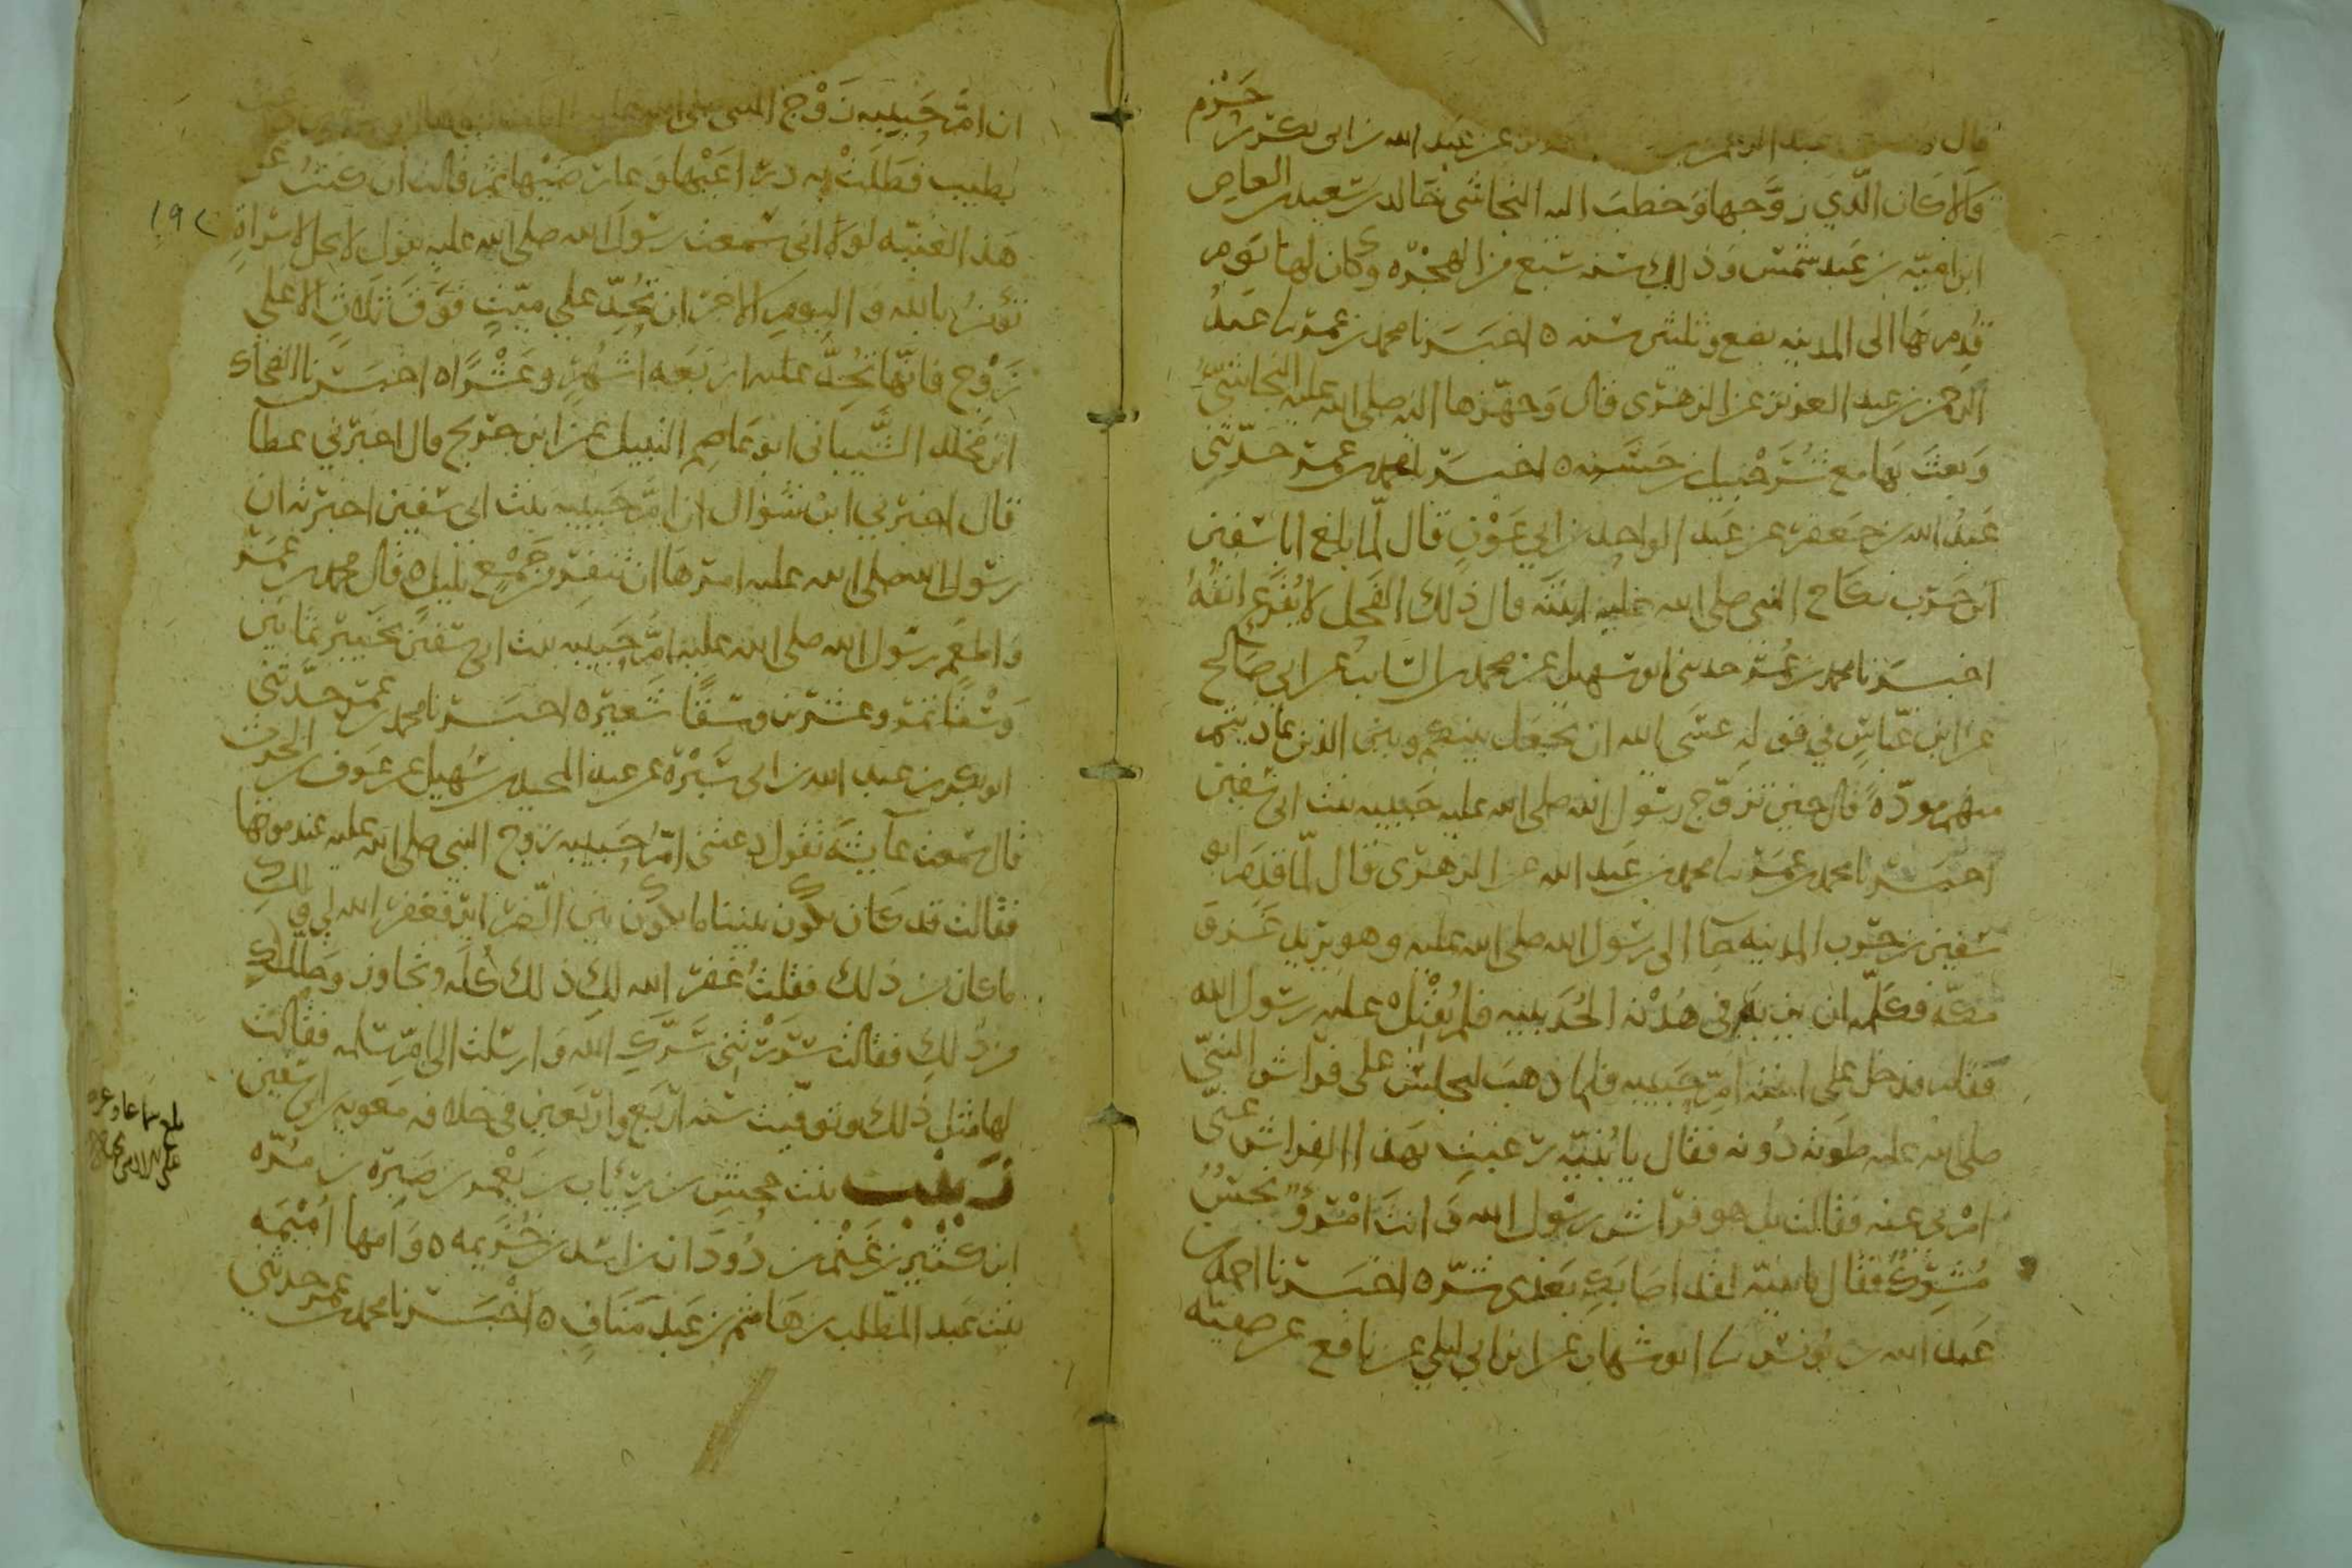 قال عبد الله بن ابي بكر بن حزم
قالا كان الذي زوجها وخطب اليه النجاشي خالد بن سعيد بن العاص
ابن امية بن عبد شمس وذلك سنة سبع من الهجرة وكان لها يوم
قدم بها الى المدينة بضع وثلثين سنه ٥ اخبرنا محمد بن عمر نا عبد
الرحمن بن عبد العزيز عن الزهري قال وجهزها اليه صلى الله عليه النجاشي
وبعث بها مع شرحبيل بن حسنه ٥ اخبرنا محمد بن عمر حدثني
عبد الله بن جعفر عن عبد الواحد بن ابي عون قال لما بلغ ابا سفين
ابن حرب نكاح النبي صلى الله عليه ابنته قال ذلك الفحل لا يقرع انفه
اخبرنا محمد بن عمر حدثني ابو سهيل عن محمد بن السائب عن ابي صالح
عن ابن عباس في قوله عسى الله ان يجعل بينكم وبين الذين عاديتم
منهم مودة قال حين تزوج رسول الله صلى الله عليه حبيبه بنت ابي سفين
اخبرنا محمد بن عمر نا محمد بن عبد الله عن الزهري قال لما قدم ابو
سفين بن حرب المدينه جا الى رسول الله صلى الله عليه وهو يريد غزو
مكه فكلمه ان يزيد في هدنة الحديبيه فلم يقبل عليه رسول الله
فقام فدخل على ابنته ام حبيبه فلما ذهب ليجلس على فراش النبي
صلى الله عليه طوته دونه فقال يا بنيه رغبت بهذا الفراش عني
ام بي عنه فقالت بل هو فراش رسول الله وانت امرؤ نجس
مشرك فقال يا بنيه لقد اصابك بعدي شر ٥ اخبرنا احمد بن
عبد الله بن يونس نا ابو شهاب عن ابن ابي ليلى عن نافع عن صفيه
ان ام حبيبه زوج النبي صلى الله عليه
بطيب فطلت به ذراعيها وعارضيها ثم قالت ان كنت عن
هذا لغنيه لولا اني سمعت رسول الله صلى الله عليه يقول لا يحل لامراة
تؤمن بالله واليوم الاخر ان تحد على ميت فوق ثلاث الا على
زوج فانها تحد عليه اربعة اشهر وعشرا ٥ اخبرنا الضحاك
ابن مخلد الشيباني ابو عاصم النبيل عن ابن جريج قال اخبرني عطا
قال اخبرني ابن شوال ان ام حبيبه بنت ابي سفين اخبرته ان
رسول الله صلى الله عليه امرها ان تنفر من جمع بليل ٥ قال محمد بن عمر
واطعم رسول الله صلى الله عليه ام حبيبه بنت ابي سفين بخيبر ثمانين
وسقا تمر وعشرين وسقا شعير ٥ اخبرنا محمد بن عمر حدثني
ابو بكر بن عبد الله بن ابي سبرة عن عبد المجيد بن سهيل عن عوف بن الحرث
قال سمعت عايشة تقول دعتني ام حبيبه زوج النبي صلى الله عليه عند موتها
فقالت قد كان يكون بيننا ما يكون بين الضراير فغفر الله لي ولك
ما كان من ذلك فقلت غفر الله لك ذلك كله وتجاوز وحللك
من ذلك فقالت سررتني سرك الله وارسلت الى ام سلمه فقالت
لها مثل ذلك وتوفيت سنه اربع واربعين في خلافه معويه بن ابي سفين
زينب بنت جحش بن رياب بن يعمر بن صبرة بن مره
ابن كثير بن غنم بن دودان بن اسد بن خزيمه ٥ وامها اميمه
بنت عبد المطلب بن هاشم بن عبد مناف ٥ اخبرنا محمد بن عمر حدثني
١٩٢